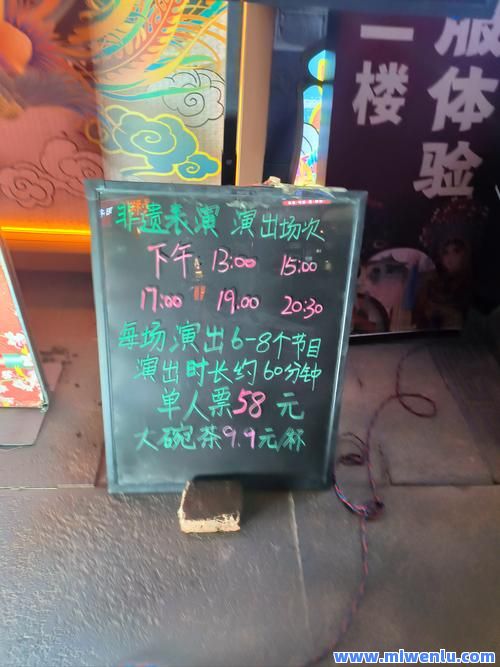 二楼
服体验
非遗表演 演出场次
下午 13:00 15:00
17:00 19:00 20:30
每场演出6-8个节目
演出时长约60分钟
单人票58元
大碗茶9.9元/杯
www.mlwenlu.com